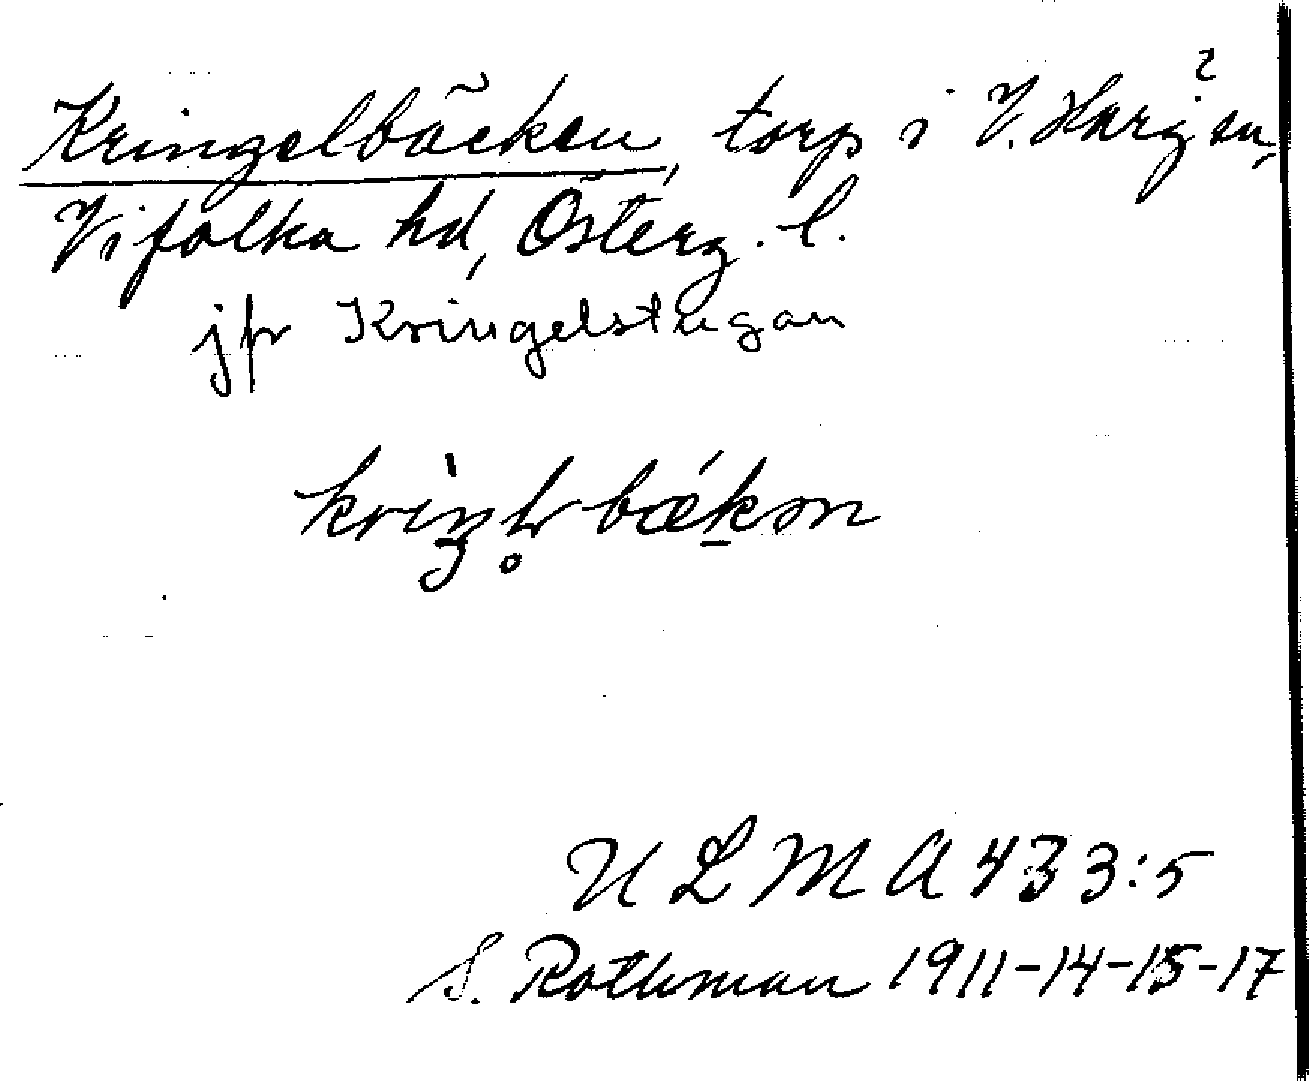 Kringelbäcken, torp i V. Harg sn,
Vifolka hd, Österg. l.
jfr Kringelstugan
U L M A 433:5
S. Rothman 1911-14-15-17